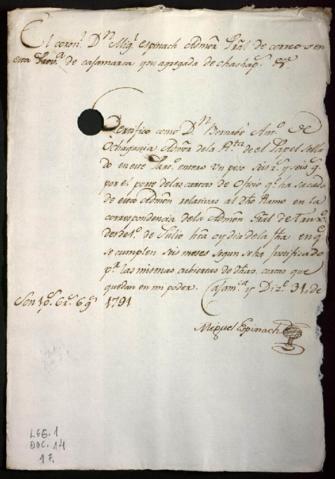 El coron.l D.n Mig.l Espinach Admõr Pral de correos en
esta Prov.a de Caxamarca y su agregada de Chachap.s &a
Certifico como D.n Bernabe Ant.o de
Ochagavia Admõr de la R.ta de el Papel Sella
do en este Par.o entero un peso seis r.s y seis g.s
por el porte de las cartas de oficio q.e ha sacado
de esta Admõn relativas al dho Ramo en la
correspondencia de la Admõn Gral de
desde 1.o de Julio hta oy dia de la fha en q.e
se cumplen seis meses segun se ha justificado
p.r las mismas cubiertas de dhas cartas que
quedan en mi poder. Caxam.ca y Diz.e 31, de
1791
Son 1p.s 6r.s 6g.s
Miguel Espinach
LEG. 1
DOC. 14
1 F.